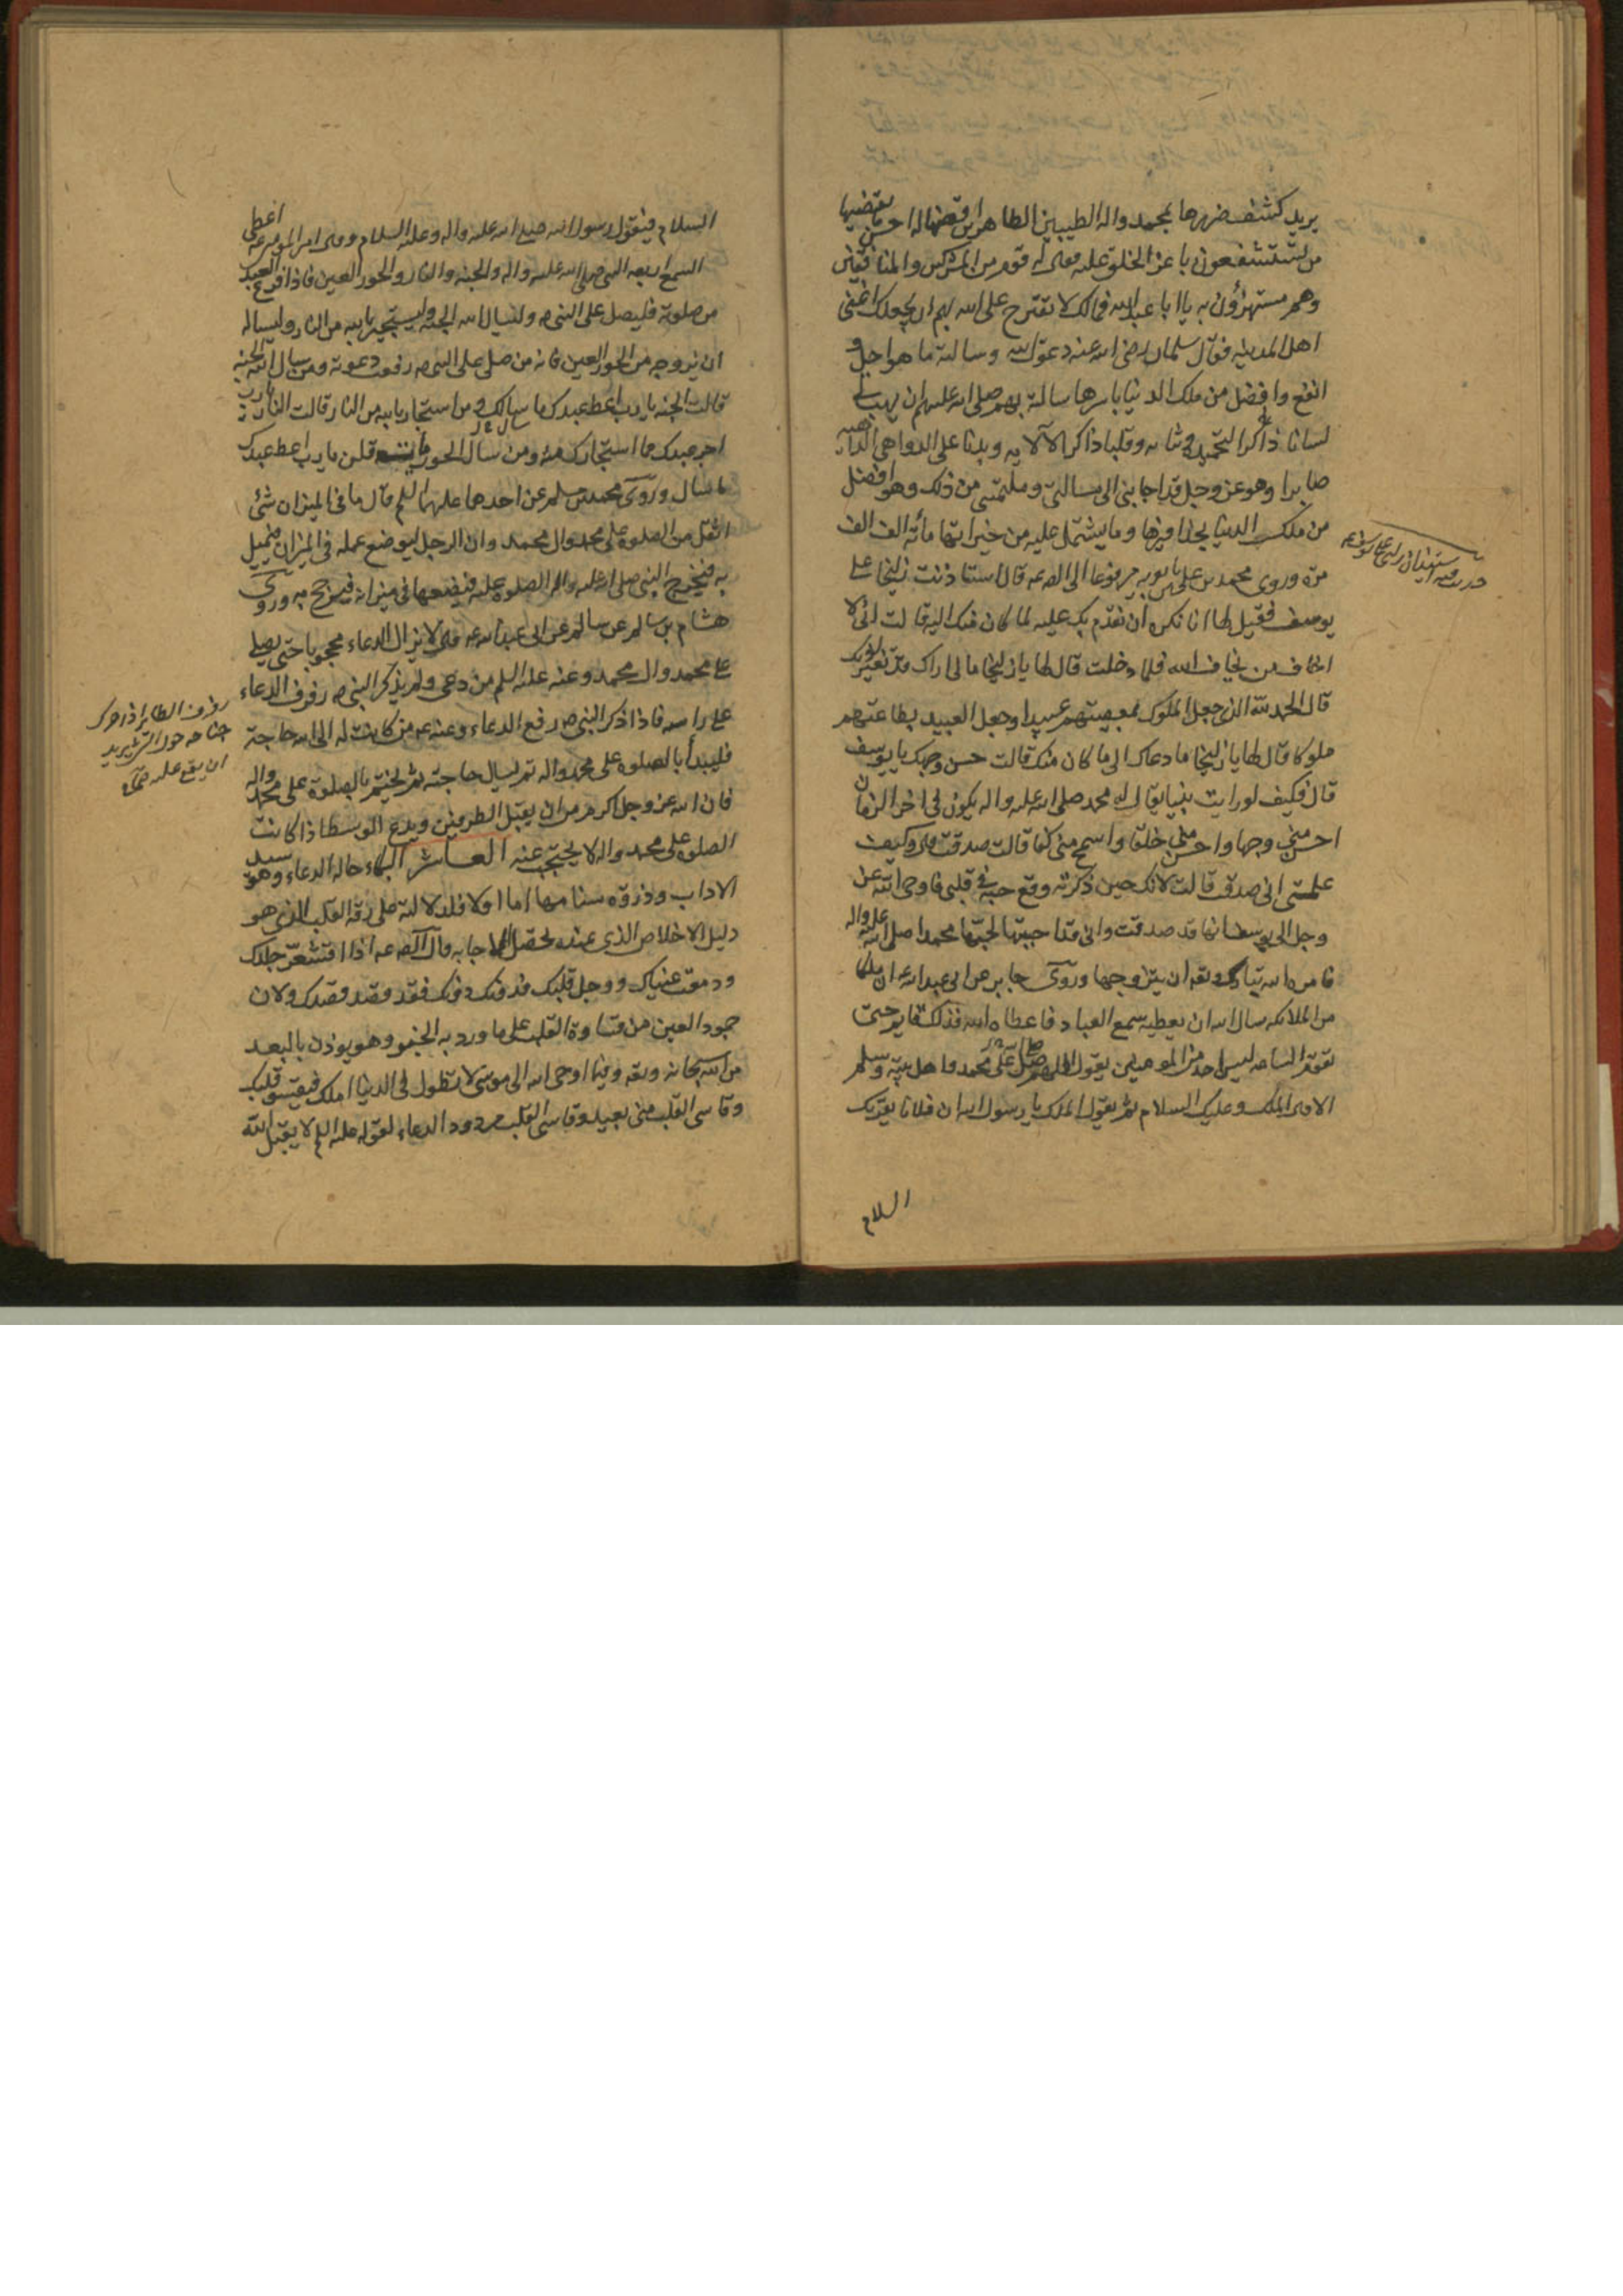 يريد كشف ضرها بمحمد واله الطيبين الطاهرين قضاها له احسن ما يقضيها
من تستشفعون باعز الخلق عليه فقال له قوم من المشركين والمنافقين
وهم مستهزؤن به يا ابا عبد الله فمالك لا تقترح على الله بهم ان يجعلك اغنى
اهل المدينة فقال سلمان رضى الله عنه دعوت الله وسالته ما هو اجل و
انفع وافضل من ملك الدنيا باسرها سالته بهم صلى الله عليهم ان يهب لى
لسانا ذاكرا لتحميده وثنائه وقلبا ذاكرا لآلائه وبدنا على الدواهى الداهية
صابرا وهو عز وجل قد اجابنى الى مسالتى وملتمسى من ذلك وهو افضل
من ملك الدنيا بحذافيرها وما يشتمل عليه من خيراتها مائة الف الف
مرة وروى محمد بن على بن بابويه مرفوعا الى الصه عه قال استاذنت زليخا على
يوسف فقيل لها انا نكره ان نقدم بك عليه لما كان منك اليه قالت انى لا
اخاف من يخاف الله فلما دخلت قال لها يا زليخا مالى اراك قد تغير لونك
قال الحمد لله الذى جعل الملوك بمعصيتهم عبيدا وجعل العبيد بطاعتهم
ملوكا قال لها يا زليخا ما دعاك الى ما كان منك قالت حسن وجهك يا يوسف
قال فكيف لو رايت نبيا يقال له محمد صلى الله عليه واله يكون فى اخر الزمان
احسن منى وجها واحسن منى خلقا واسمح منى كفا قالت صدقت قال وكيف
علمتى انى صدقت قالت لانك حين ذكرته وقع حبه فى قلبى فاوحى الله عز
وجل الى يوسف انها قد صدقت وانى قد احببتها لحبها محمدا صلى الله عليه واله
فامره الله تبارك وتعه ان يتزوجها وروى جابر عن ابى عبد الله عه ان ملكا
من الملائكه سال الله ان يعطيه سمع العباد فاعطاه الله فذلك قايم حتى
تقوم الساعه ليس احد من المومنين يقول اللهم صل على محمد واهل بيته وسلم
الا قال الملك وعليك السلام ثم يقول الملك يا رسول الله ان فلانا يقريك
السلام
السلام فيقول رسول الله صلى الله عليه واله وعليه السلام وقال امير المومنين عه اعطى
السمع اربعه النبى صلى الله عليه واله والجنه والنار والحور العين فاذا فرغ العبد
من صلوته فليصل على النبى ص وليسال الله الجنة وليستجير بالله من النار وليساله
ان يزوجه من الحور العين فانه من صلى على النبى ص رفعت دعوته ومن سال الله الجنه
قالت الجنه يا رب اعط عبدك ما سالك ومن استجار بالله من النار قالت النار يا رب
اجر عبدك مما استجارك منه ومن سال الحور قلن يا رب اعط عبدك
ما سال وروى محمد بن مسلم عن احدهما عليهما السلم قال ما فى الميزان شئ
اثقل من الصلوة على محمد وال محمد وان الرجل ليوضع عمله فى الميزان فيميل
به فيخرج النبى صلى الله عليه واله الصلوة عليه فيضعها فى ميزانه فيرجح به وروى
هشام بن سالم عن ابى عبد الله عه قال لا يزال الدعاء محجوبا حتى يصلى
على محمد وال محمد وعنه عليه السلم من دعى ولم يذكر النبى ص رفرف الدعاء
على راسه فاذا ذكر النبى ص رفع الدعاء وعنه عه من كانت له الى الله حاجة
فليبدأ بالصلوة على محمد واله ثم يسال حاجته ثم يختم بالصلوة على محمد واله
فان الله عز وجل اكرم من ان يقبل الطرفين ويدع الوسط اذا كانت
الصلوة على محمد واله لا يحتجب عنه العاشر البكاء حاله الدعاء وهو سيد
الاداب وذروه سنامها اما اولا فلدلالته على رقة القلب الذى هو
دليل الاخلاص الذى عنده تحصل الاجابه قال الصه عه اذا اقشعر جلدك
ودمعت عيناك ووجل قلبك فدونك دونك فقد قصد قصدك ولان
جمود العين من قساوة القلب على ما ورد به الخبر وهو يوذن بالبعد
من الله سبحانه وتعه وفيما اوحى الله الى موسى لا تطول فى الدنيا املك فيقسو قلبك
وقاسى القلب منى بعيد وقاسى القلب مردود الدعاء لقوله عليه السلم لا يقبل الله
رفرف الطاير اذا حرك
جناحه حول الشئ يريد
ان يقع عليه صحاح